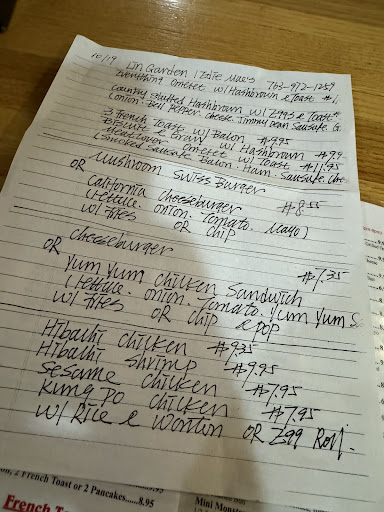 10/19
Lin Garden / Edie Mae's 763-972-1259
Everything Omelet w/Hashbrown & Toast #1
Country Stuffed Hashbrown w/2 Eggs & Toast #
(onion. Bell Pepper. Cheese. Jimmy Dean Sausage. G.
3 French Toast w/ Bacon #9.95
Biscuit & Gravy w/ Hashbrown #9.9
Meatlover Omelet w/ Toast #11.95
(Smoked Sausage. Bacon. Ham. Sausage. Che
OR Mushroom Swiss Burger
California Cheeseburger #8.55
(Lettuce. onion. Tomato. Mayo)
w/ fries OR chip
OR Cheeseburger
Yum Yum Chicken Sandwich #7.35
(Lettuce. onion. Tomato. Yum Yum S.
w/ fries OR chip & pop
Hibachi chicken #9.35
Hibachi Shrimp #9.95
Sesame chicken #7.95
Kung Po chicken #7.95
w/ Rice & Wonton OR Egg Roll.
2 French Toast or 2 Pancakes.....8.95
French T
Mini Mons